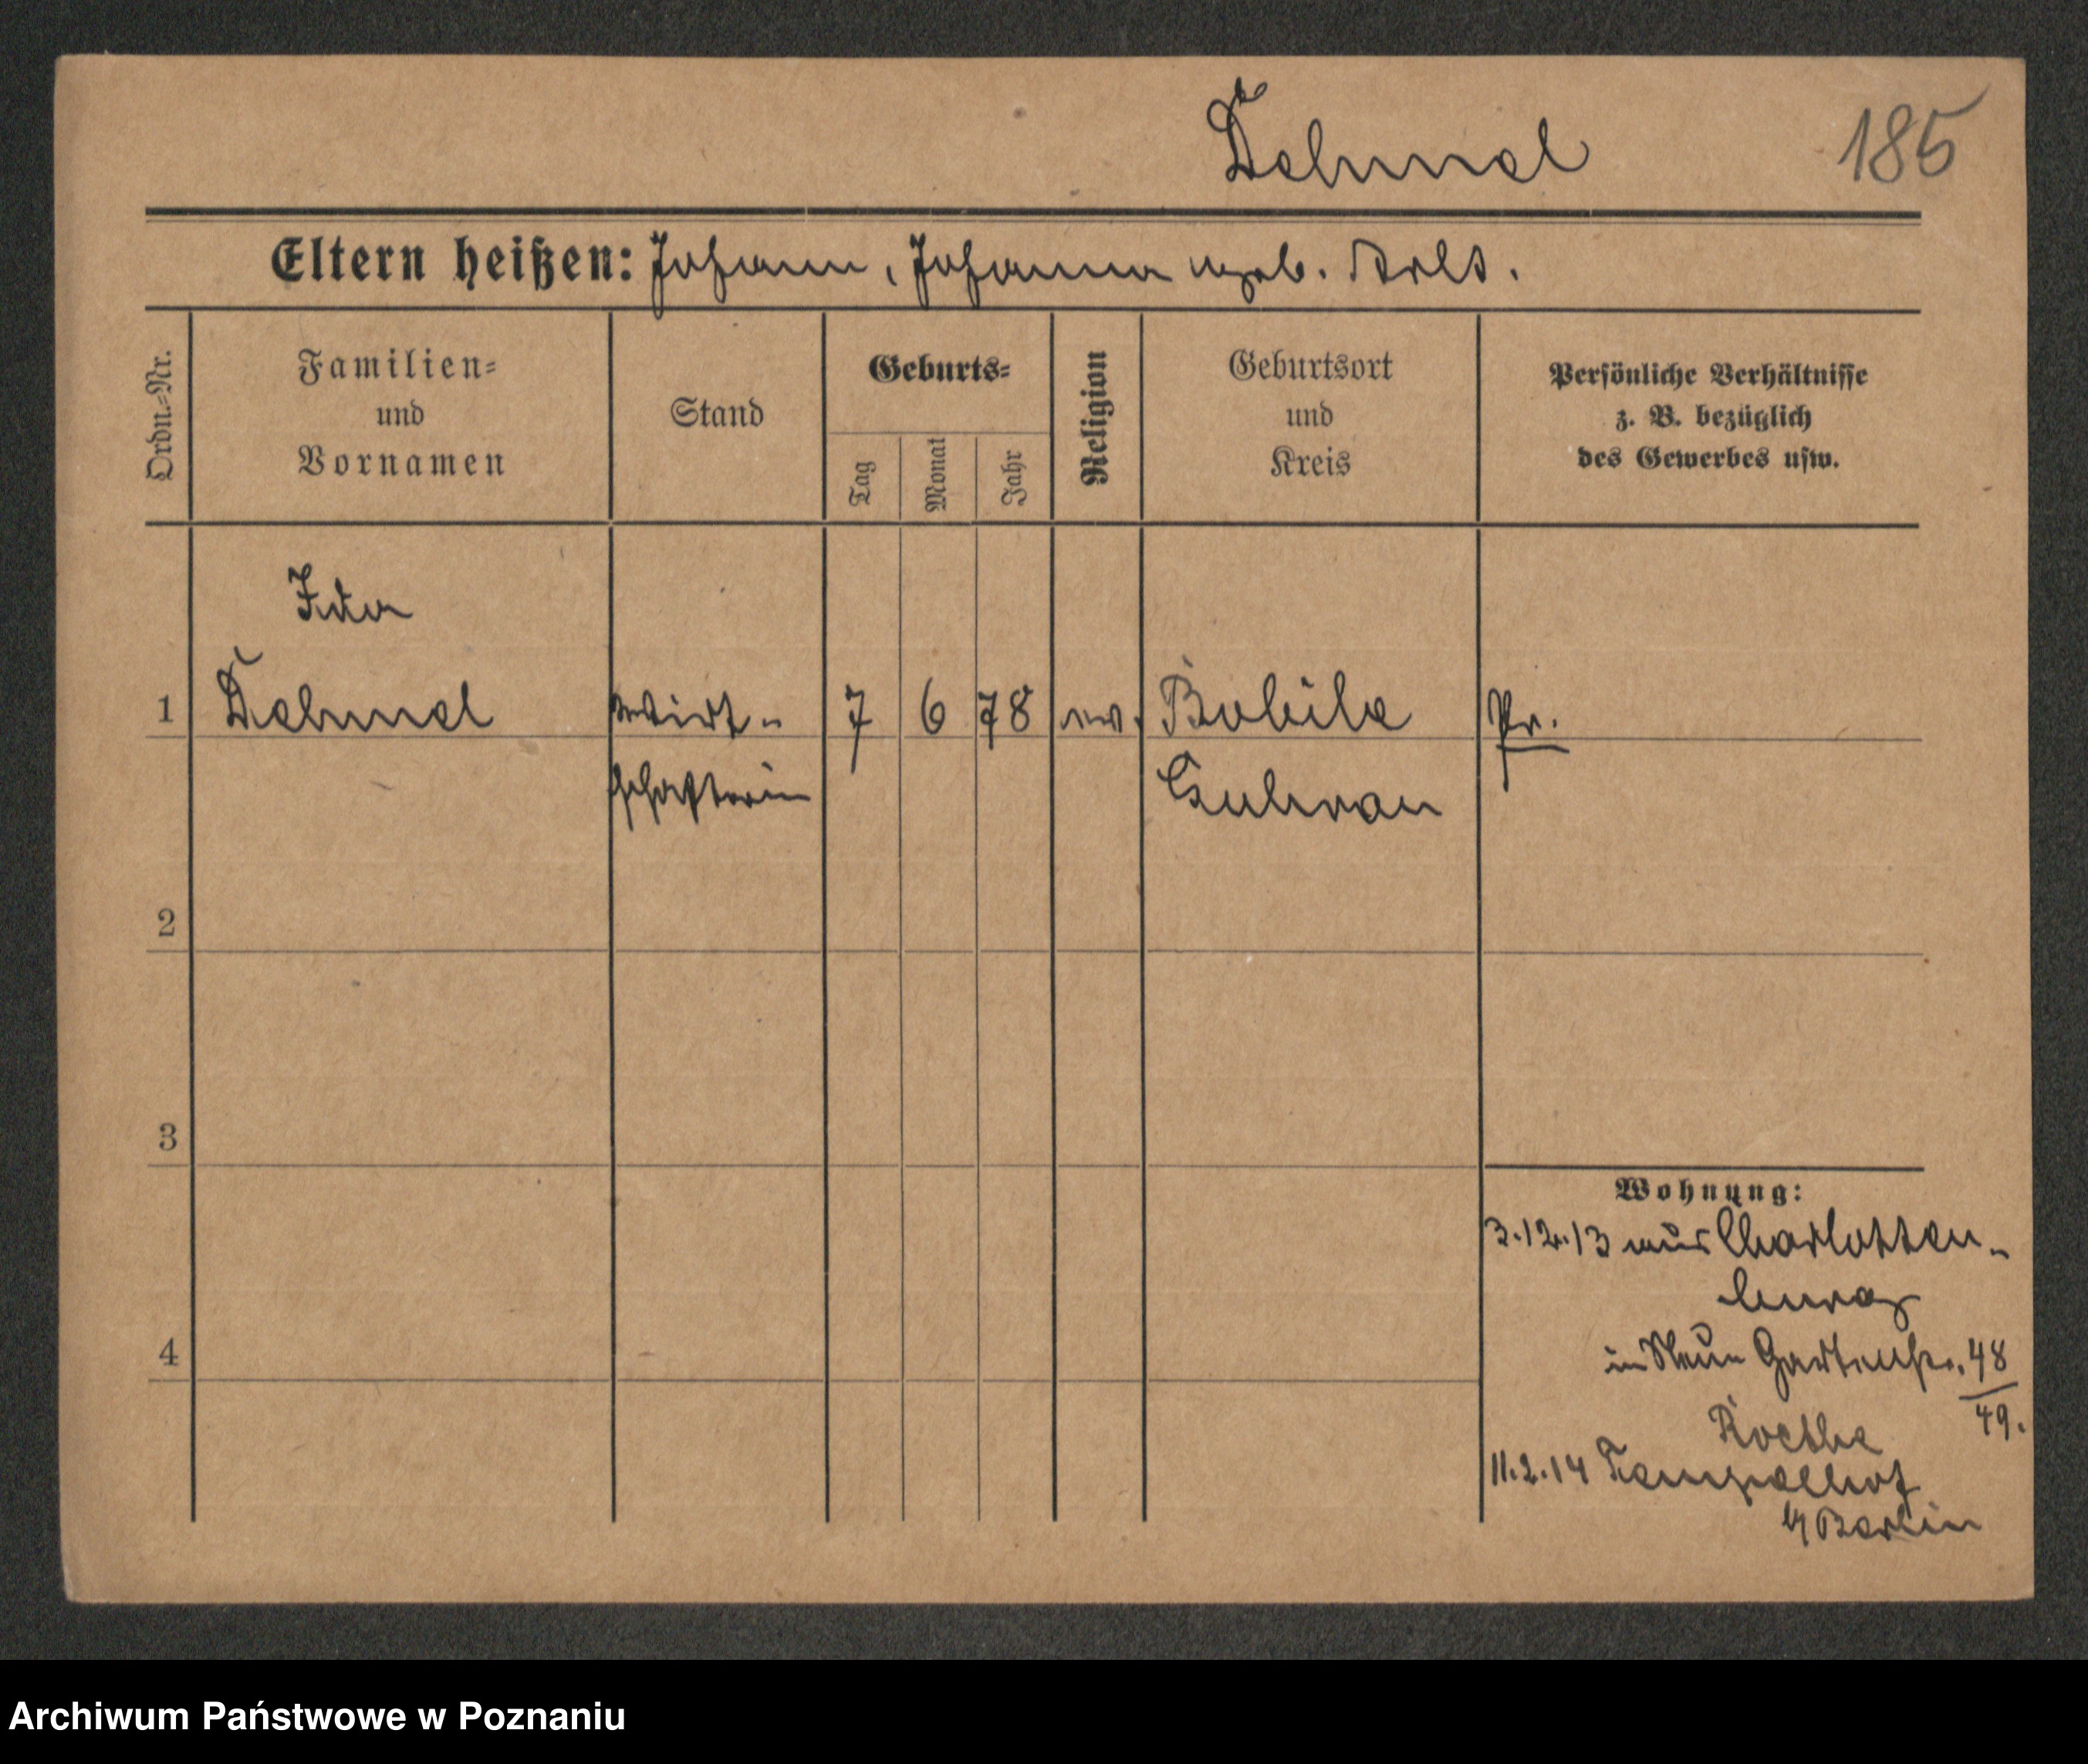 Dehmel 185
Eltern heißen: Johann, Johanna geb.
Ordn.-Nr.
Familien-
und
Vornamen
Stand
Geburts-
Tag
Monat
Jahr
Religion
Geburtsort
und
Kreis
Persönliche Verhältnisse
z. B. bezüglich
des Gewerbes usw.
Ida
1 Dehmel Wirt- 7 6 78 ev. Bobile Pr.
schafterin Guhrau
2
3
Wohnung:
3.12.13 aus Charlotten-
burg
4
in Neue Gartenstr. 48
49.
11.2.14 Tempelhof
b/Berlin
Archiwum Państwowe w Poznaniu